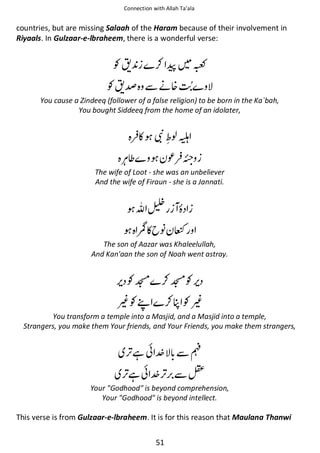 Connection with Allah Ta'ala
countries, but are missing Salaah of the Haram because of their involvement in
Riyaals. In Gulzaar-e-Ibraheem, there is a wonderful verse:
کعبہ میں پیدا کرے زندیق کو
لاوے بُت خانے سے وہ صدیق کو
You cause a Zindeeq (follower of a false religion) to be born in the Ka`bah,
You bought Siddeeq from the home of an idolater,
اہلیہ لوطِ نبی ہو کافرہ
زوجۂ فرعون ہووے طاہرہ
The wife of Loot - she was an unbeliever
And the wife of Firaun - she is a Jannati.
زادۂ آزر خلیل اللہ ہو
اور کنعان نوح کا گمراہ ہو
The son of Aazar was Khaleelullah,
And Kan'aan the son of Noah went astray.
دیر کو مسجد کرے مسجد کو دیر
غیر کو اپنا کرے اپنے کو غیر
You transform a temple into a Masjid, and a Masjid into a temple,
Strangers, you make them Your friends, and Your Friends, you make them strangers,
فہم سے بالا خدائی ہے تری
عقل سے برتر خدائی ہے تری
Your "Godhood" is beyond comprehension,
Your "Godhood" is beyond intellect.
This verse is from Gulzaar-e-Ibraheem. It is for this reason that Maulana Thanwi
51